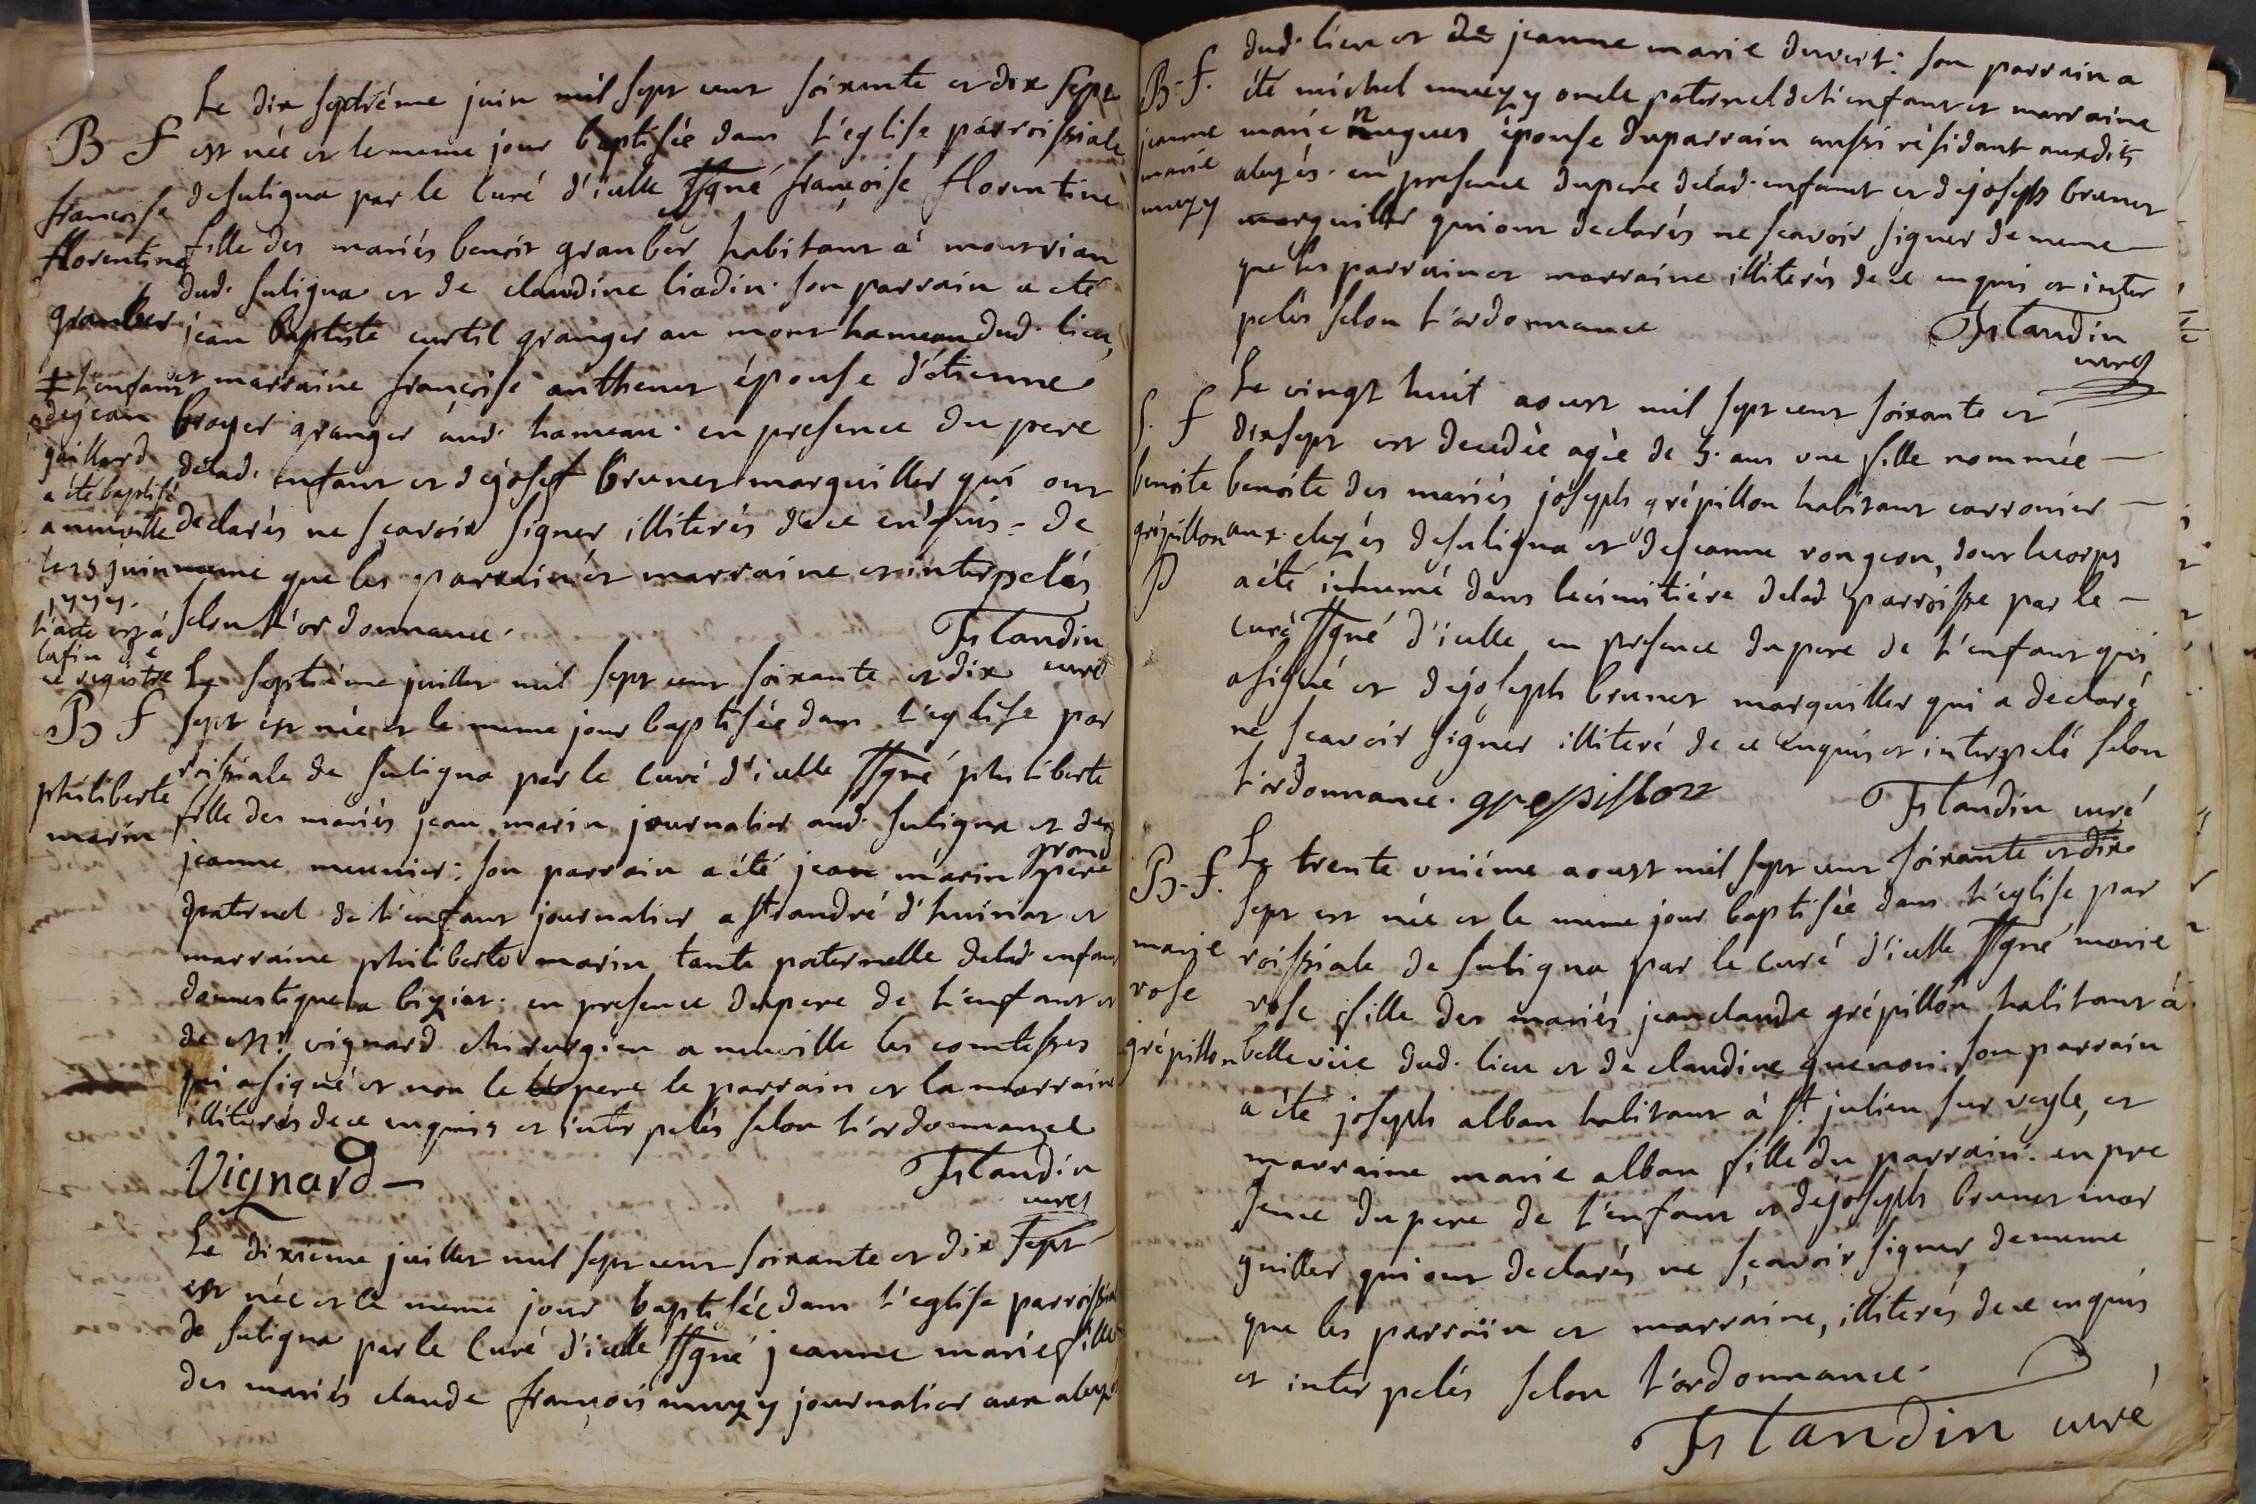 B f
françoise
florentine
granber
Le dix septiéme juin mil sept cent soixante et dix sept
est née et le meme jour baptisée dans l'eglise parroissiale
de suligna par le curé d'icelle ssgné françoise florentine
fille des mariés benoit granber habitant à montrian
dud. suligna et de claudine liadin. son parrain a été
jean baptiste curtil granger au mont hameau dud. lieu,
et marraine françoise anthenet épouse d'étienne
broyer granger aud. hameau. en presence du pere
delad. enfant et de josef brunet marguiller qui ont
declarés ne sçavoir signer illiterés de ce enquis. de
meme que les parrain et marraine et interpelés
selon l'ordonnance.
Islandin
curé
‡ l'enfant
de jean
guillard
a été baptisé
a neuville
le 25 juin
1777.
l'acte est à
la fin de
ce registre
B f
philiberte
marin
Le septiéme juillet mil sept cent soixante et dix
sept est née et le meme jour baptisée dans l'eglise par
roissiale de suligna par le curé d'icelle ssgné philiberte
fille des mariés jean marin journalier aud. suligna et de
jeanne meunier: son parrain a été jean marin grand pere
paternel de l'enfant journalier a st andré d'huiriat et
marraine philiberte marin tante paternelle delad. enfant
domestique a biziat. en presence du pere de l'enfant et
de Mr. vignard chirurgien a neuville les comtesses
qui a signé et non le pere le parrain et la marraine
illiterés de ce enquis et interpelés selon l'ordonnance
Vignard
Islandin
curé
Le dixieme juillet mil sept cent soixante et dix sept
est née et le meme jour baptisée dans l'eglise parroissial
de suligna par le curé d'icelle ssgné jeanne marie fille
des mariés claude françois muzy journalier aux aluzés
B. f.
jeanne
marie
muzy
dud. lieu et de jeanne marie duvert: son parrain a
été michel muzy oncle paternel de l'enfant et marraine
marie nugues épouse du parrain aussi résidant auxdits
aluzés. en presence du pere delad. enfant et de joseph brunet
marguiller qui ont declarés ne scavoir signer de meme
que les parrain et marraine illiterés de ce enquis et inter
pelés selon l'ordonnance
Islandin
curé
S. f
benoite
grépillon
Le vingt huit aoust mil sept cent soixante et
dix sept est decedée agée de 5. ans une fille nommée
benoite des mariés joseph grépillon habitant carronier
aux eluzés de suligna et de jeanne rongeon, dont le corps
a été inhumé dans le cimitiére delad. parroisse par le
curé ssgné d'icelle en presence du pere de l'enfant qui
a signé et de joseph brunet marguiller qui a declaré
ne scavoir signer illiteré de ce enquis et interpelé selon
l'ordonnance. grepillon
Islandin curé
B. f.
marie
rose
grépillon
Le trente uniéme aoust mil sept cent soixante et dix
sept est née et le meme jour baptisée dans l'eglise par
roissiale de suligna par le curé d'icelle ssgné marie
rose fille des mariés jean claude grépillon habitant à
belle viie dud. lieu et de claudine guenon: son parrain
a été joseph alban habitant à st. julien sur veyle, et
marraine marie alban fille du parrain. en pre
sence du pere de l'enfant et de joseph brunet mar
guiller qui ont declarés ne sçavoir signer de meme
que les parrain et marraine, illiterés de ce enquis
et interpelés selon l'ordonnance.
Islandin curé